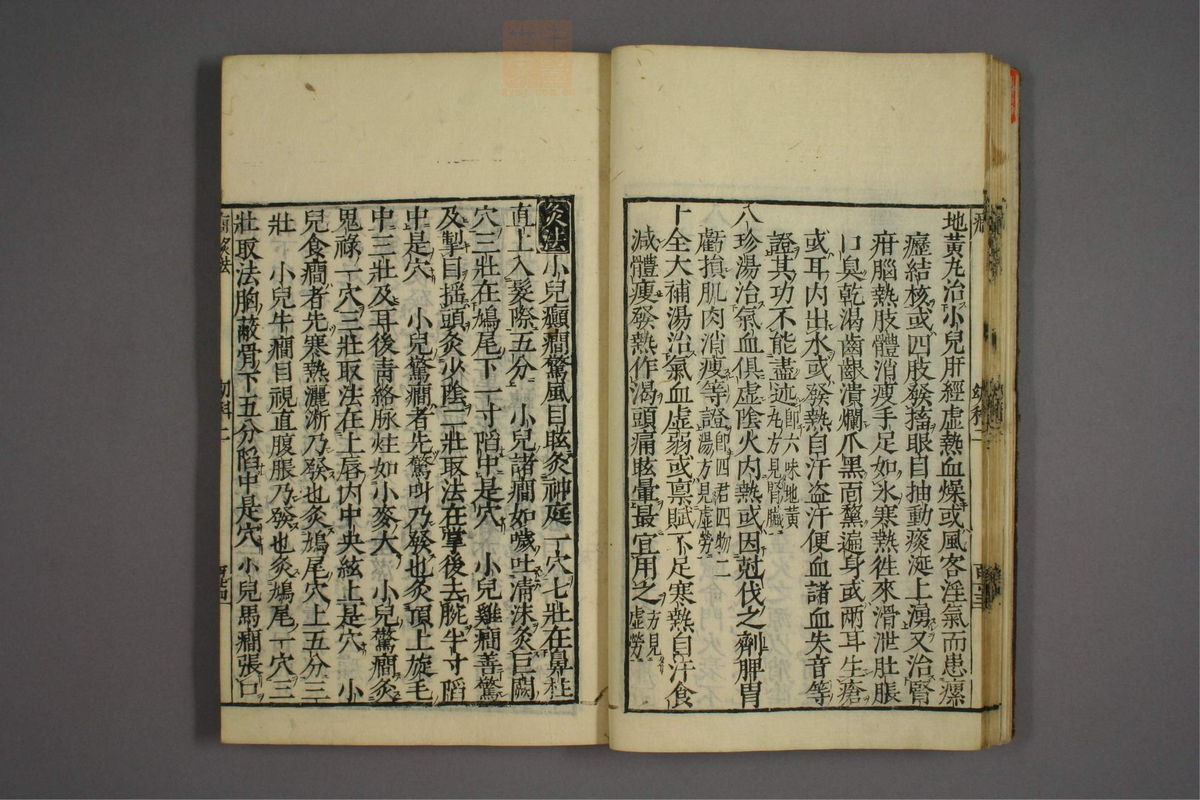 地黃丸治小兒肝經虛熱血燥或風客淫氣而患瘰
癧結核或四肢發搐眼目抽動痰涎上湧又治腎
疳腦熱肢體消瘦手足如氷寒熱徃來滑泄肚脹
口臭乾渴齒齦潰爛爪黑面黧遍身或兩耳生瘡
或耳内出水或發熱自汗盗汗便血諸血失音等
證其功不能盡述即六味地黄丸方見腎臟
八珍湯治氣血俱虛陰火内熱或因尅伐之劑脾胃
虧損肌肉消瘦等證即四君四物二湯方見虛勞
十全大補湯治氣血虛弱或禀賦不足寒熱自汗食
減體瘦發熱作渴頭痛眩暈最宜用之方見虛勞
灸法小兒癲癇驚風目眩灸神庭一穴七壯在鼻柱
直上入髮際五分 小兒諸癇如嘔吐清沫灸巨闕
穴三壯在鳩尾下一寸陷中是穴 小兒雞癇善驚
及掣目摇頭灸少陰二壯取法在掌後去腕半寸陷
中是穴 小兒驚癇者先驚叫乃發也灸頂上旋毛
中三壯及耳後青絡脉炷如小麥大 小兒驚癇灸
鬼祿一穴三壯取法在上唇内中央絃上是穴 小
兒食癇者先寒熱灑淅乃發也灸鳩尾穴上五分三
壯 小兒牛癇目視直腹脹乃發也灸鳩尾一穴三
壯取法胸蔽骨下五分陷中是穴 小兒馬癇張口